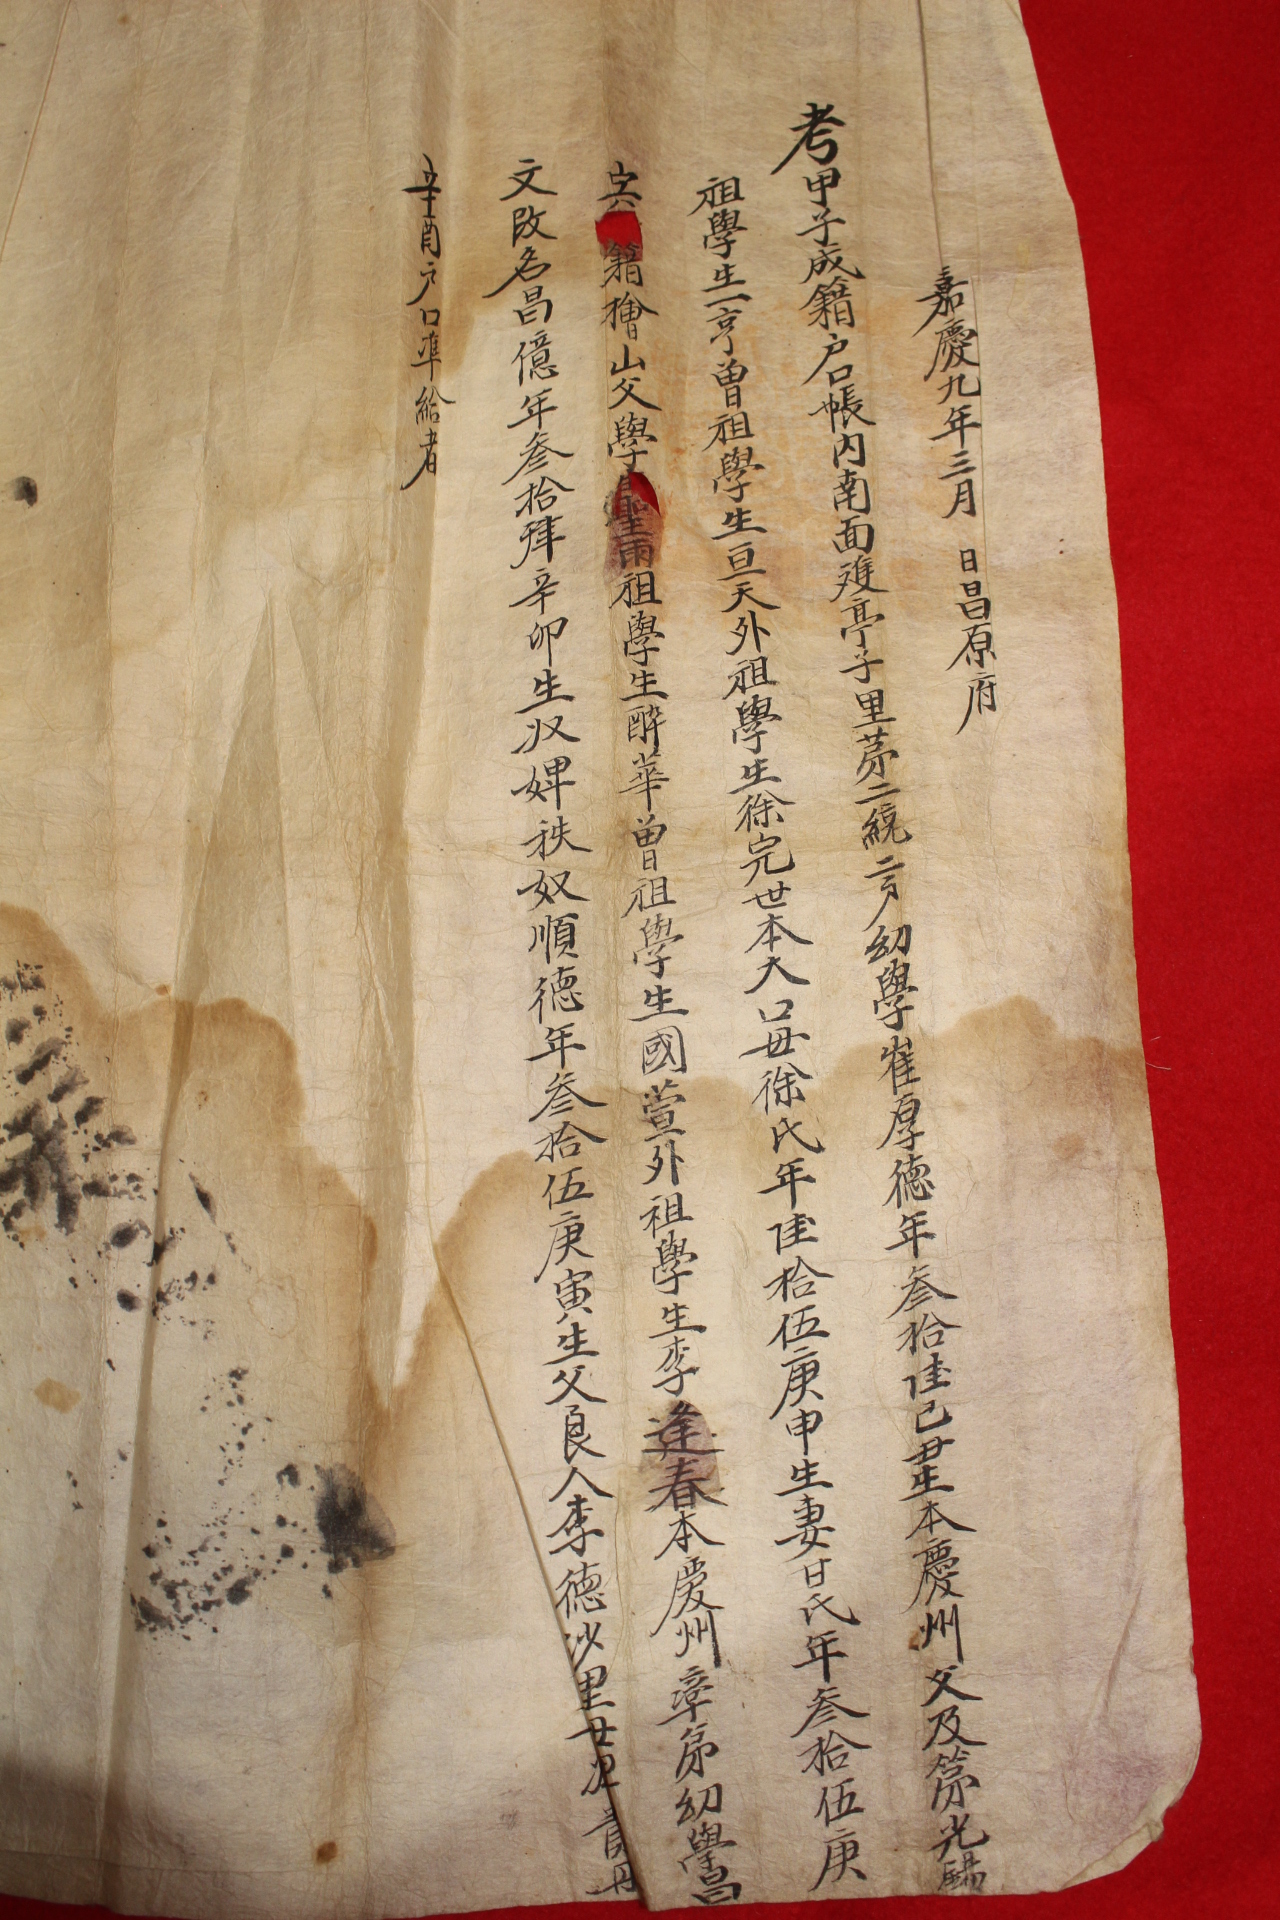 嘉慶九年三月 日昌原府
考甲子成籍户口帳內南面 亭子里苐二統 户幼學崔厚德年叁拾 己丑生本慶州父及第光
祖學生一亨曾祖學生亘天外祖學生徐完世本大口母徐氏年 拾伍庚申生妻 氏年叁拾伍庚
寅 籍檜山父學 聖雨祖學生醉華曾祖學生國萱外祖學生李逢春本慶州率弟幼學昌
文改名昌億年叁拾肆辛卯生奴婢秩奴順德年叁拾伍庚寅生父良人李德沙里
辛酉户口準給者